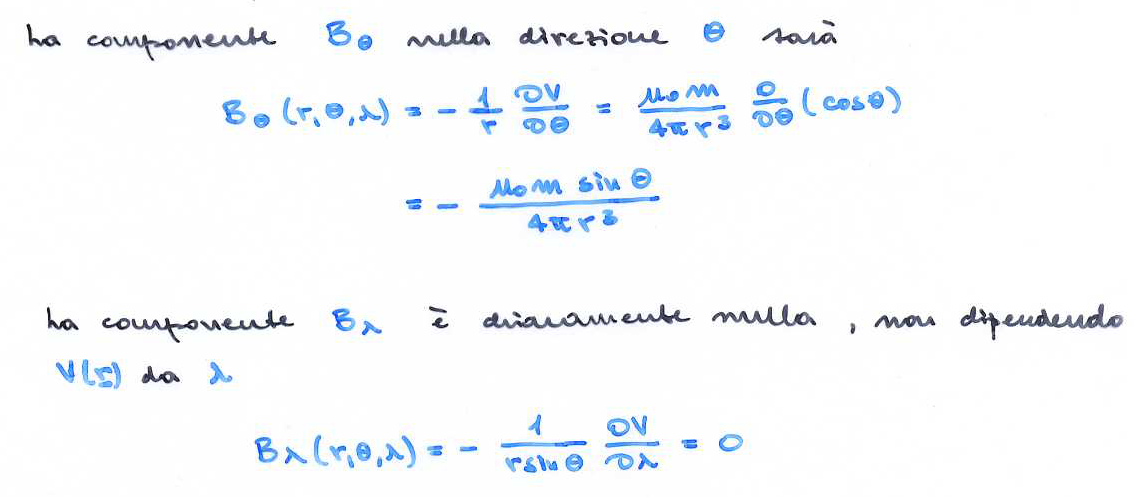 La componente B_θ nella direzione θ sarà
B_θ (r, θ, λ) = - 1/r ∂V/∂θ = μ₀ m / 4π r³ ∂/∂θ (cos θ)
= - μ₀ m sin θ / 4π r³
La componente B_λ è chiaramente nulla, non dipendendo
V(r) da λ
B_λ (r, θ, λ) = - 1 / r sin θ ∂V/∂λ = 0